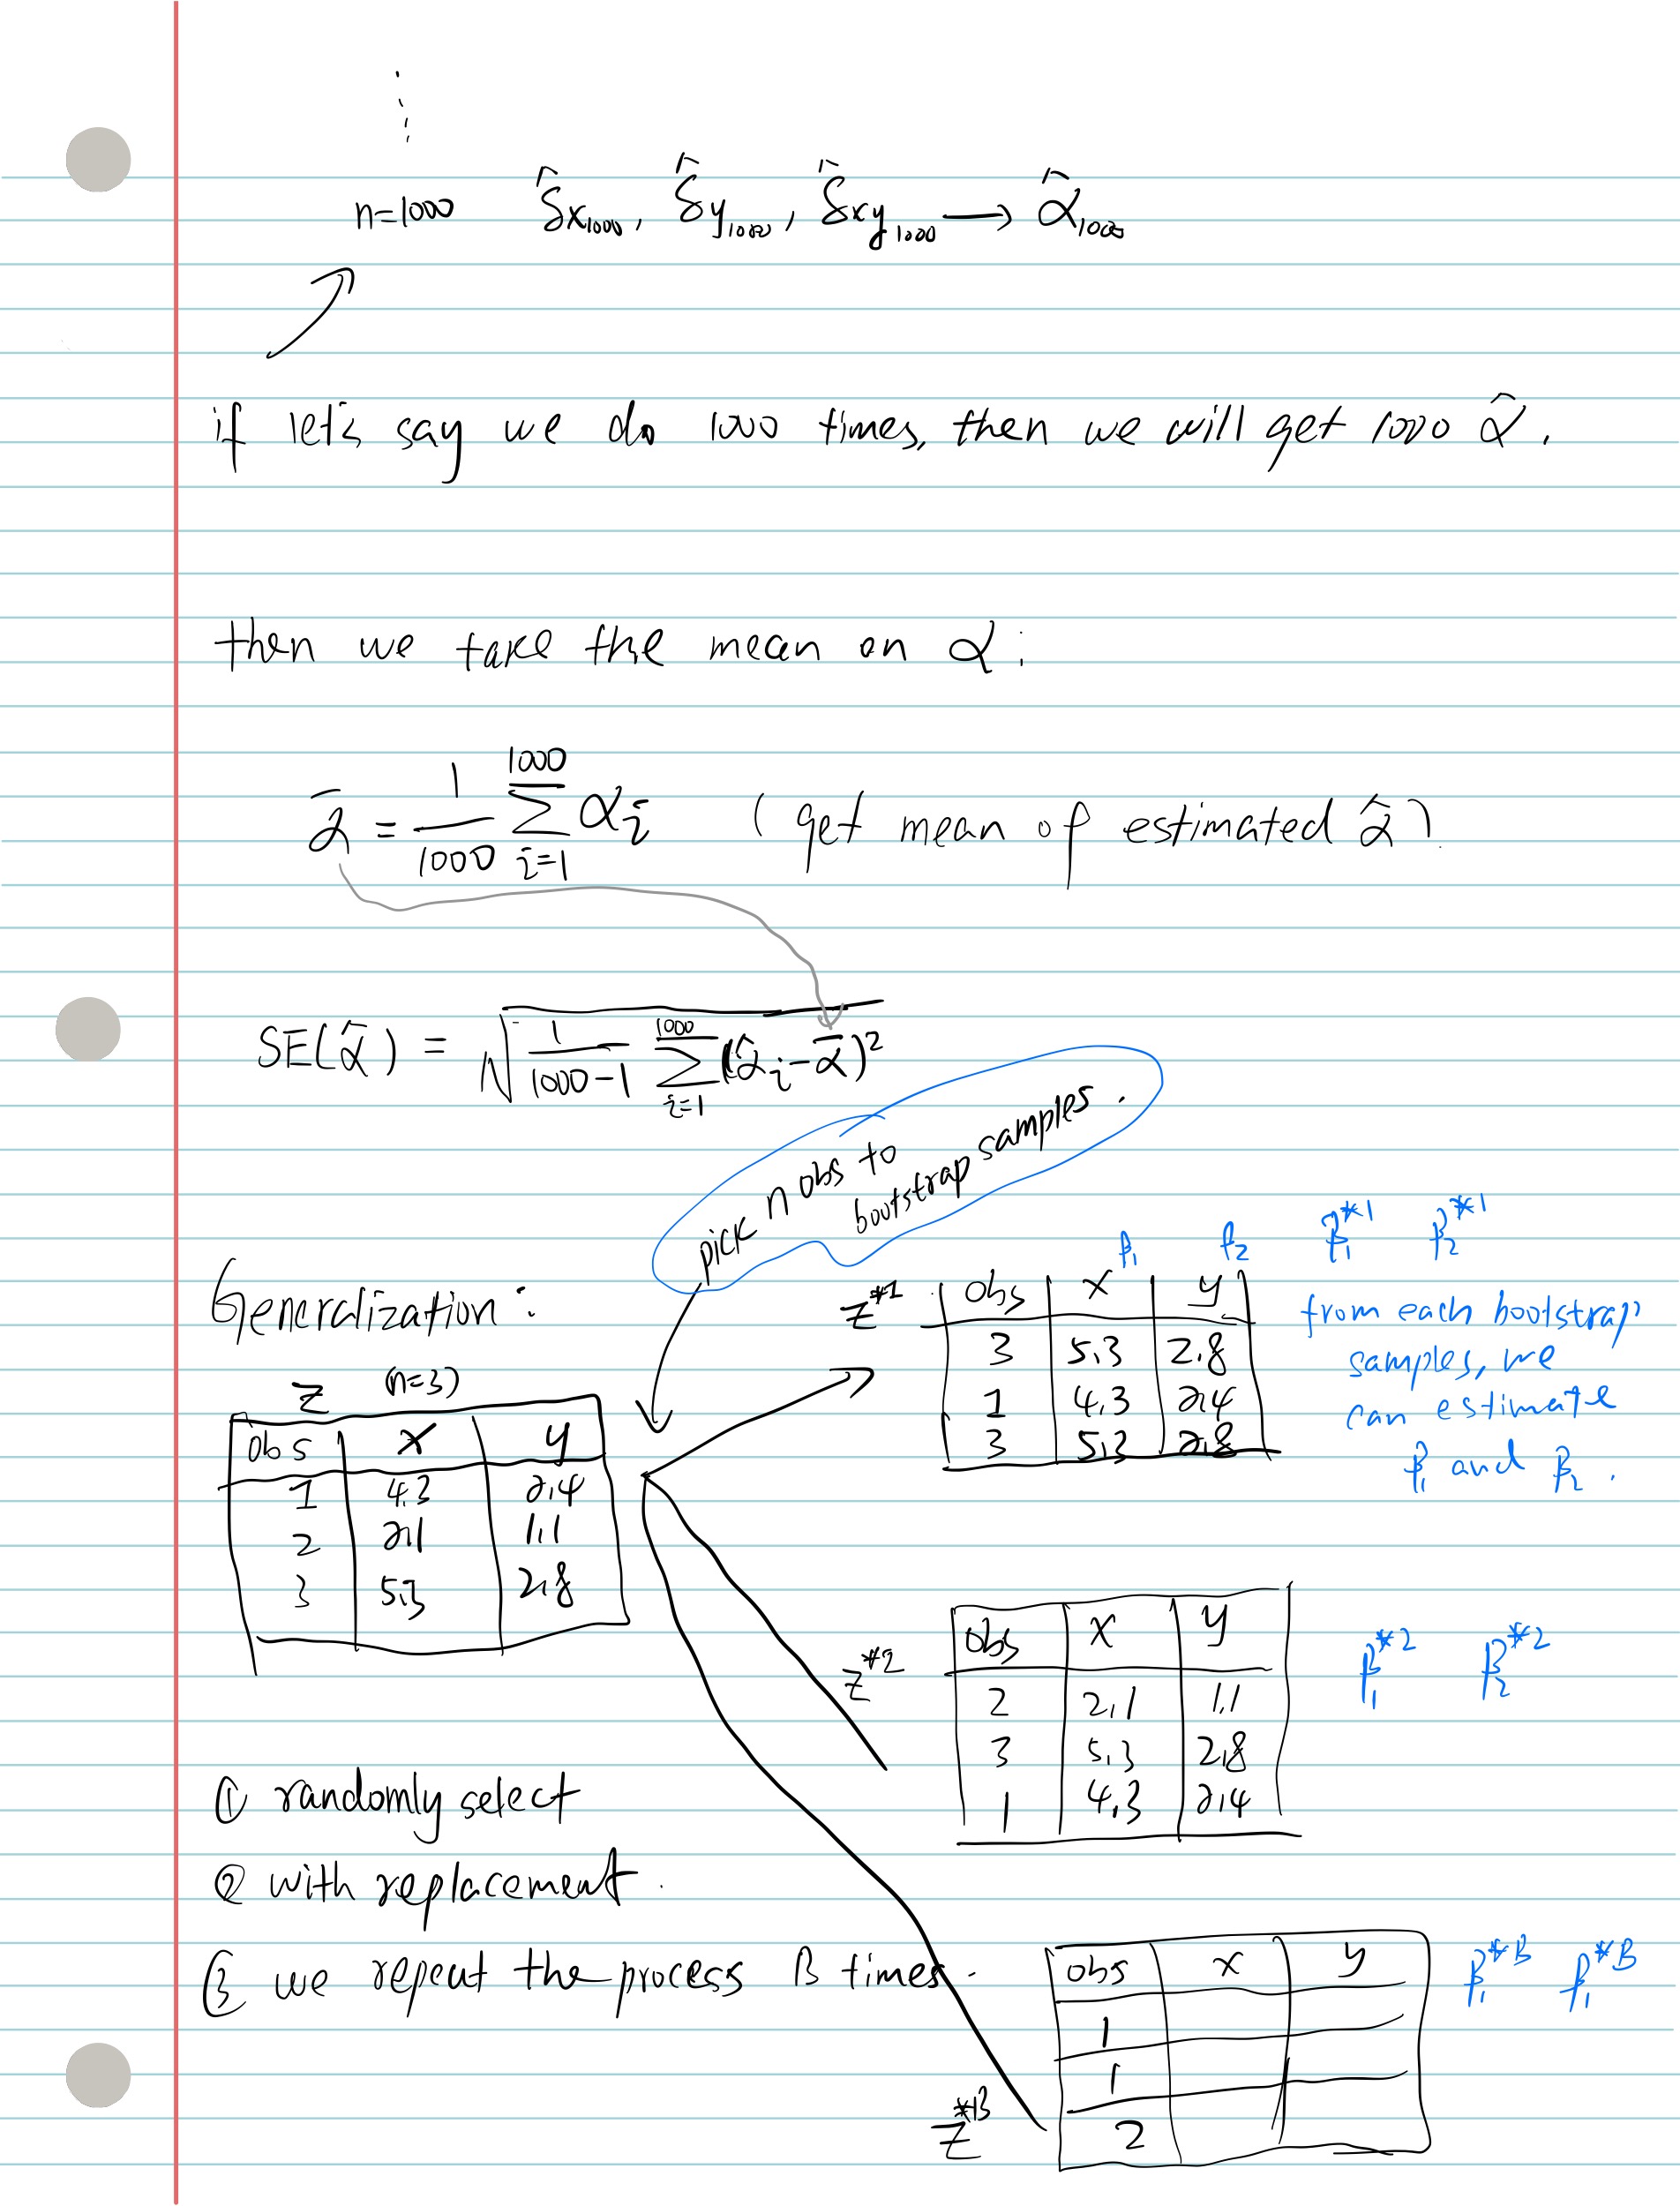 n=1000 δ̂x₁₀₀₀, δ̂y₁₀₀₀, δ̂xy₁₀₀₀ ⟶ α̂₁₀₀₀
if let's say we do 1000 times, then we will get 1000 α̂.
then we take the mean on α:
ᾱ = 1/1000 Σ_{i=1}^{1000} αᵢ (get mean of estimated α̂)
SE(α̂) = √(1/(1000-1) Σ_{i=1}^{1000} (α̂ᵢ-ᾱ)²)
pick n obs to
bootstrap samples.
Generalization:
Z (n=3)
obs x y
1 4.3 2.4
2 2.1 1.1
3 5.3 2.8
Z*1
β₁ β₂ β₁*1 β₂*1
obs x y
3 5.3 2.8
1 4.3 2.4
3 5.3 2.8
from each bootstrap
samples, we
can estimate
β₁ and β₂.
Z*2
obs x y
2 2.1 1.1
3 5.3 2.8
1 4.3 2.4
β₁*2 β₂*2
① randomly select
② with replacement.
③ we repeat the process B times.
Z*B
obs x y
1
1
2
β₁*B β₁*B